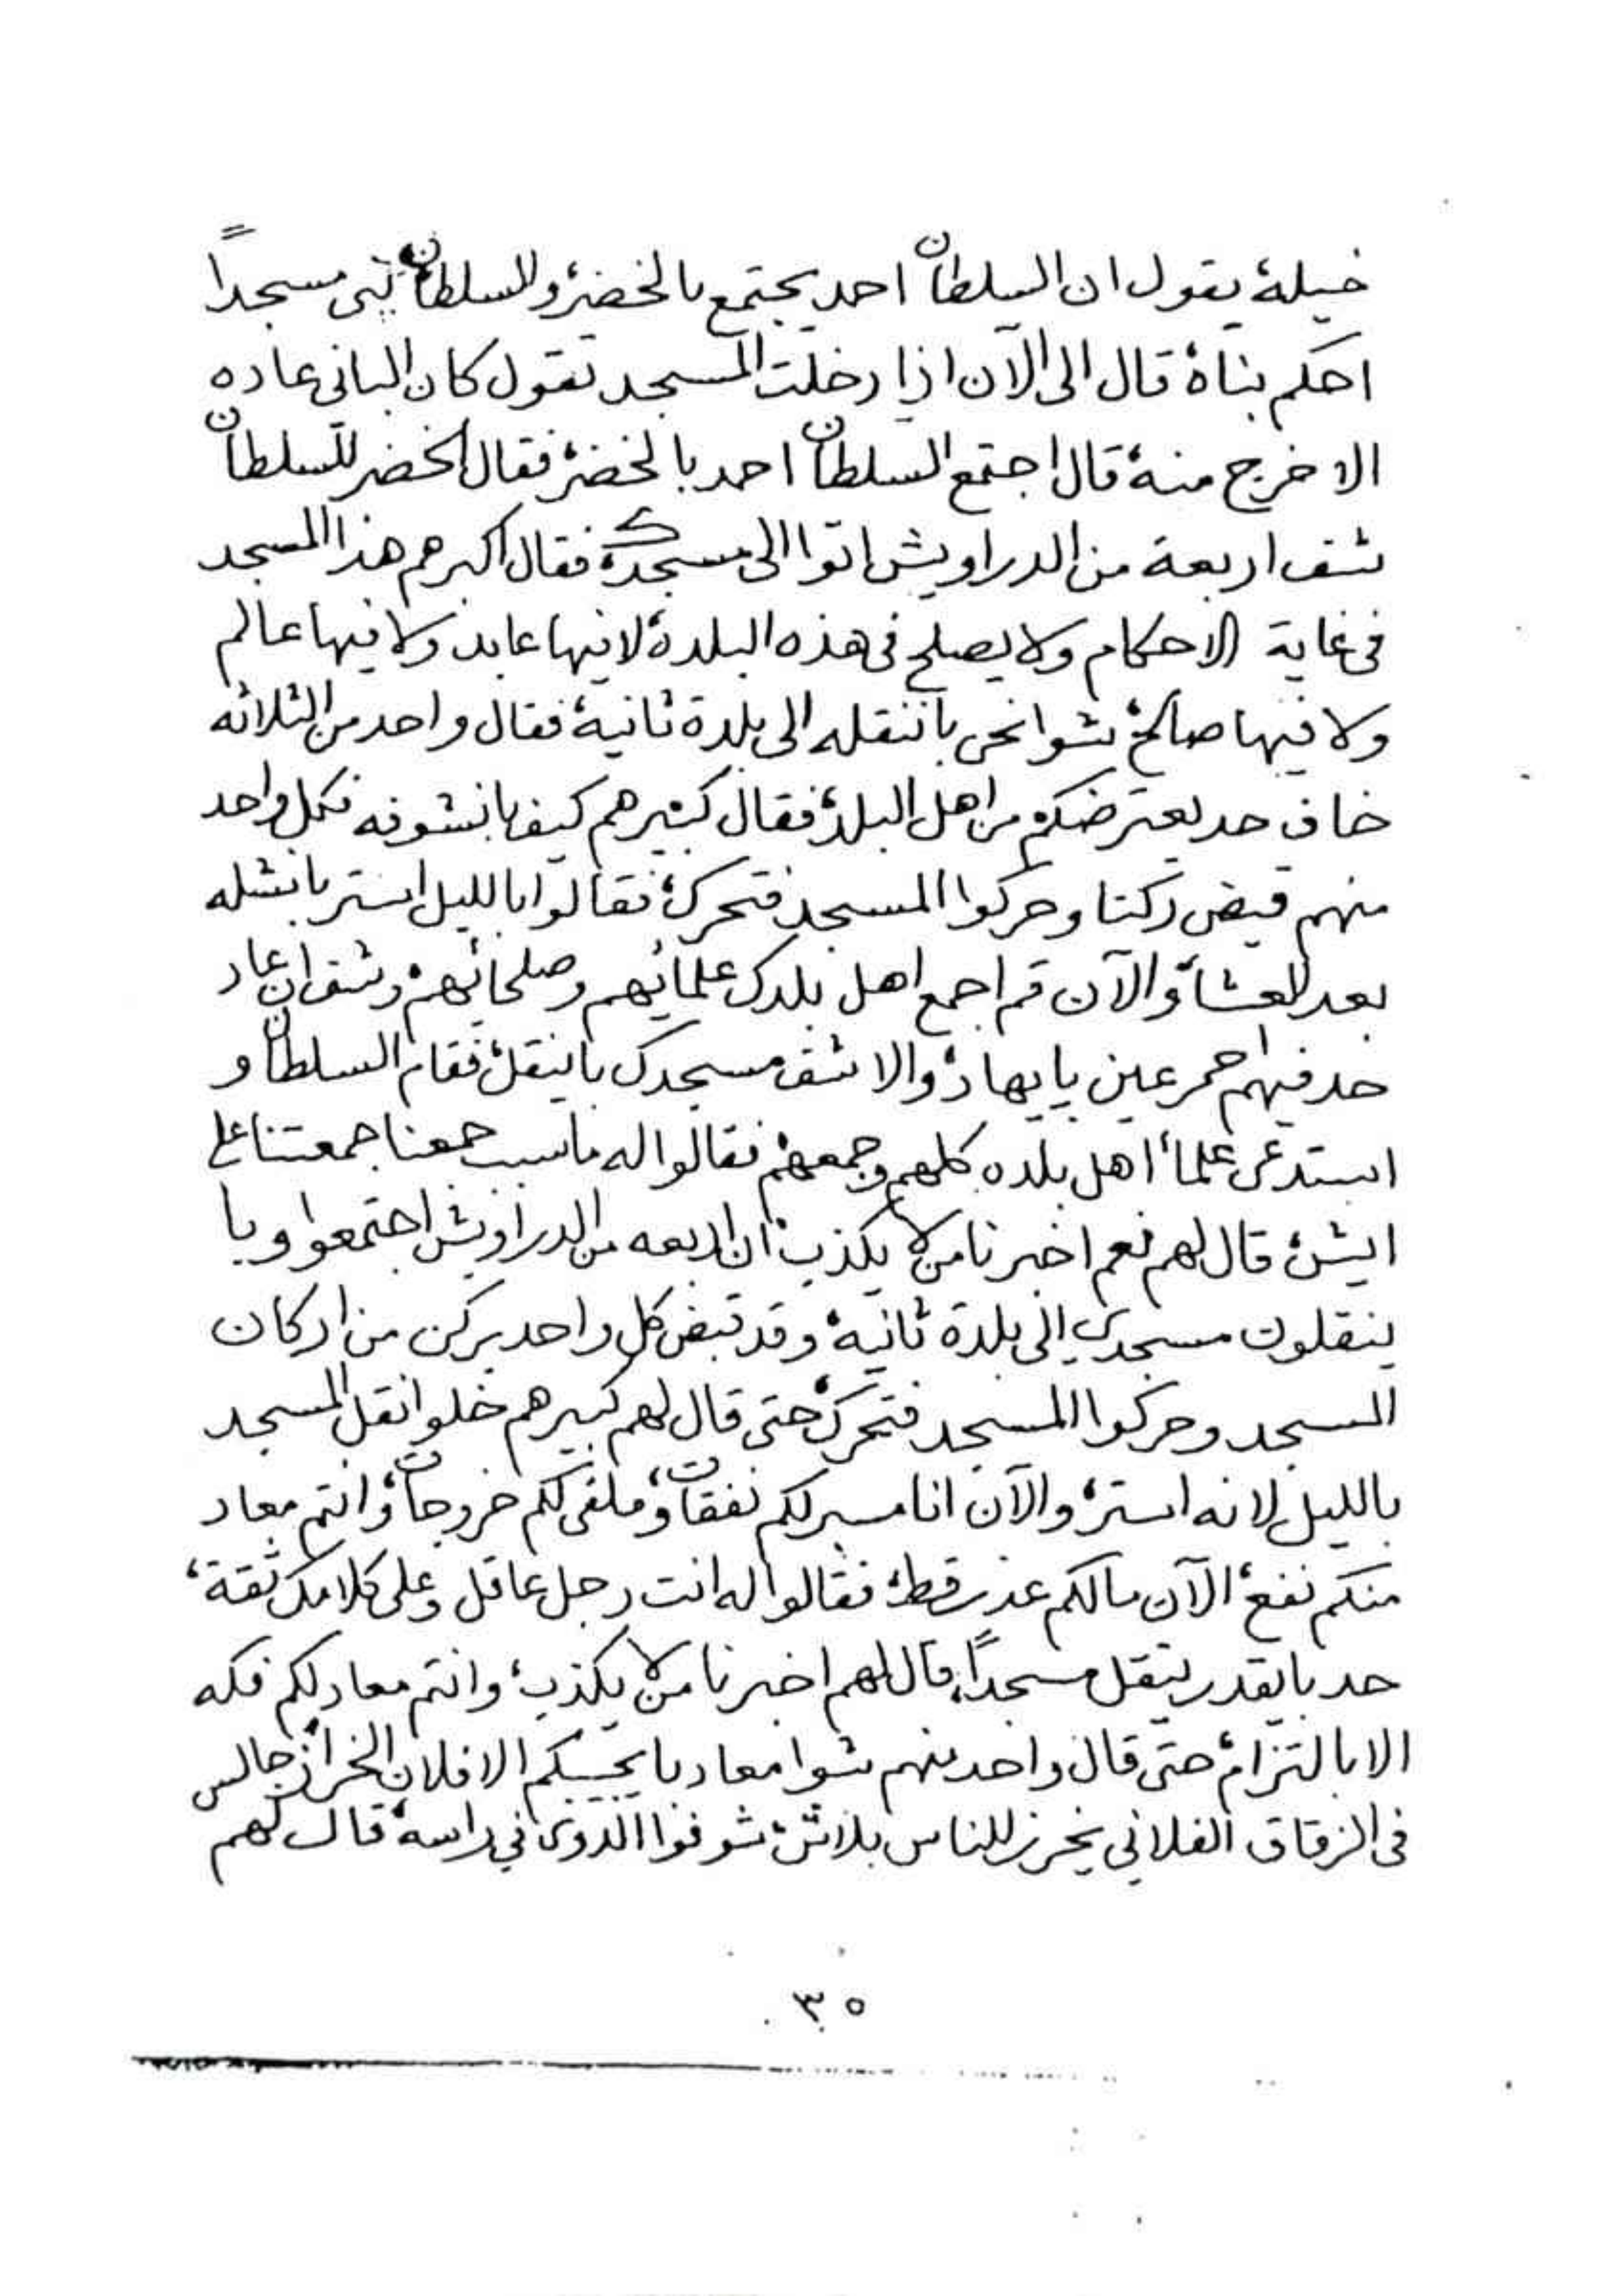 خيلة، يقول ان السلطان احمد يجتمع بالخضر، والسلطان بنى مسجداً
احكم بناه، قال الى الآن اذا دخلت المسجد تقول كان البانى عاده
الا خرج منه، قال اجتمع السلطان احمد بالخضر، فقال الخضر للسلطان
شف اربعة من الدراويش اتوا الى مسجدك، فقال اكبرهم هذا المسجد
فى غاية الاحكام ولا يصلح فى هذه البلدة، لا فيها عابد ولا فيها عالم
ولا فيها صالح، شوا نحن باننقله الى بلدة ثانية، فقال واحد من الثلاثه
خاف حد يعترضكم من اهل البلد، فقال كبيرهم كيف بانشوفه فكل واحد
منهم قبض ركنا وحركوا المسجد فتحرك، فقالوا بالليل استر بانشله
بعد العشاء، والآن قم اجمع اهل بلدك علمائهم وصلحائهم، وشف ان عاد
حد فيهم احمر عين بايهاد، والا شف مسجدك باينقل، فقام السلطان و
استدعى علماء اهل بلده كلهم وجمعهم، فقالوا له ما سبب جمعنا جمعتنا على
ايش، قال لهم نعم اخبرنا من لا يكذب، ان اربعه من الدراويش اجتمعوا وبا
ينقلون مسجدي الى بلدة ثانية، وقد قبض كل واحد بركن من اركان
المسجد وحركوا المسجد فتحرك، حتى قال لهم كبيرهم خلوا نقل المسجد
بالليل لانه استر، والآن انا مسبر لكم نفقات، وملقى لكم خروجات، وانتم معاد
منكم نفع، الآن مالكم عذر قط، فقالوا له انت رجل عاقل وعلى كلامك ثقة،
حد بايقدر ينقل مسجداً، قال لهم اخبرنا من لا يكذب، وانتم معاد لكم فكه
الا بالتزام، حتى قال واحد منهم شوا معاد با يحسبكم الا فلان الخراز، جالس
فى الزقاق الفلاني يخرز للناس بلاش، شوفوا الدوى في راسه، قال لهم
٣٥